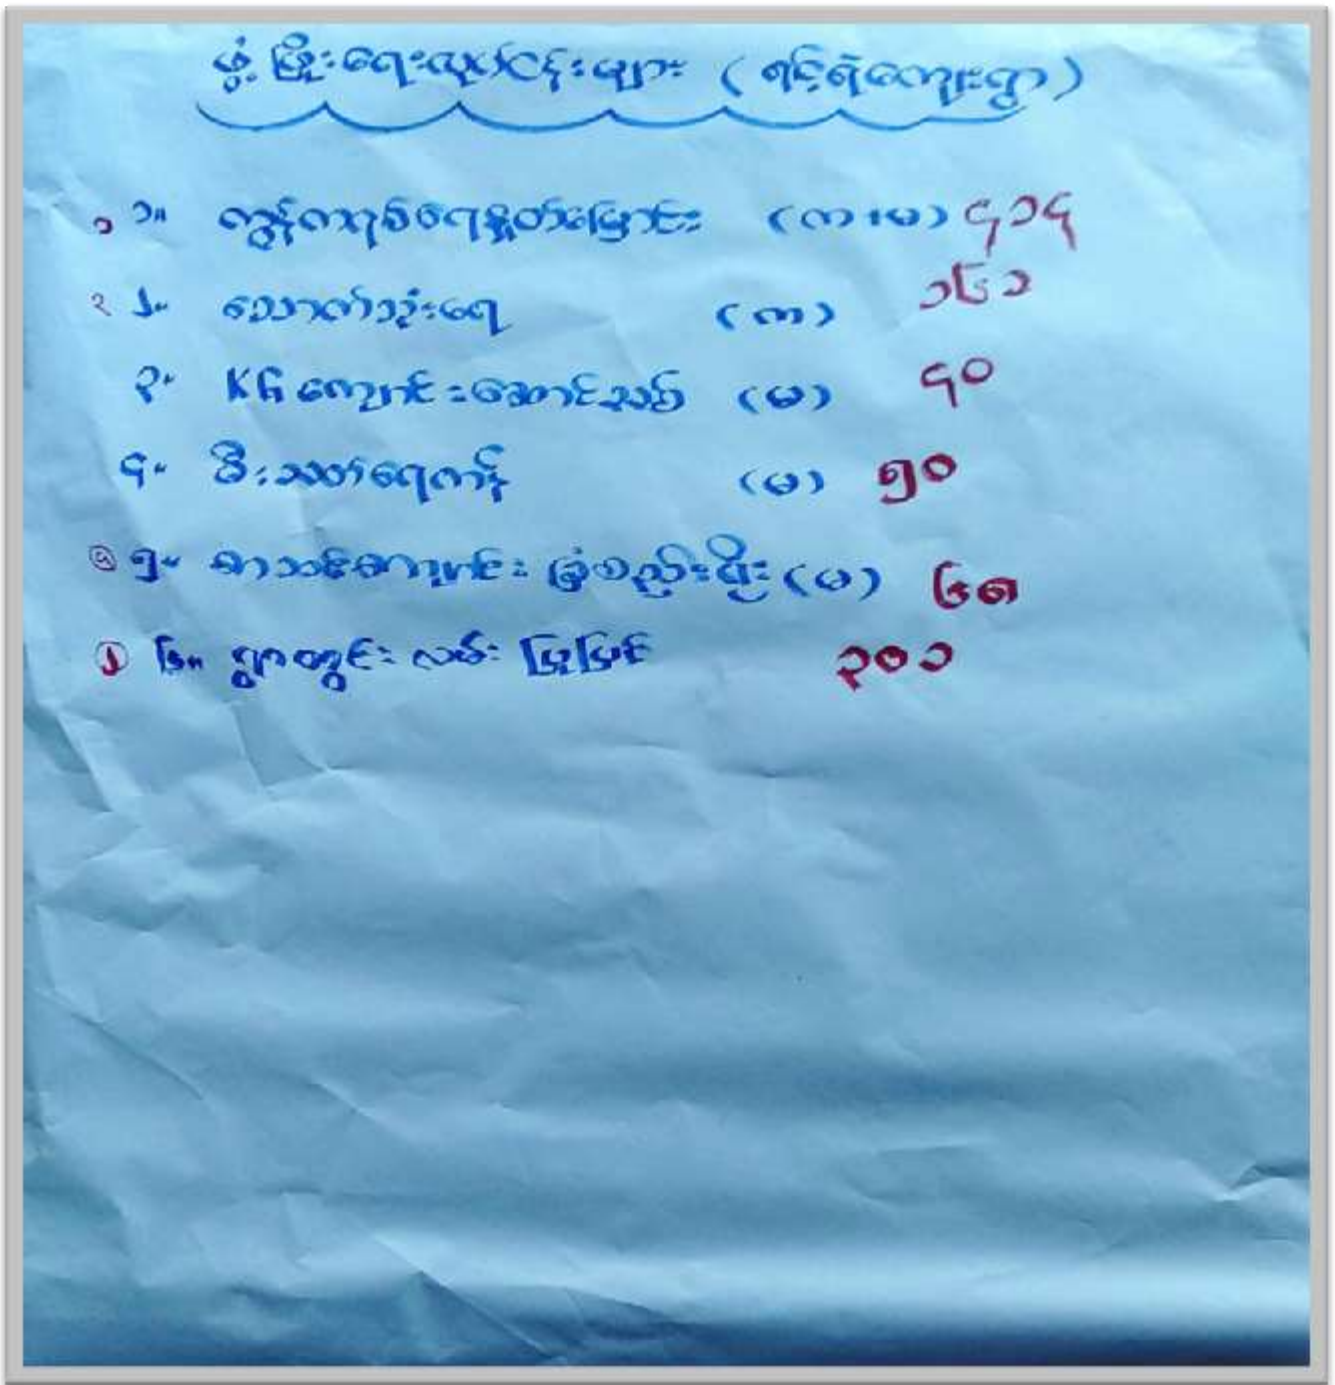 ဖွံ့ဖြိုးရေးလုပ်ငန်းများ (ရင့်ရဲကျေးရွာ)
၁ ၁။ ကွန်ကရစ်ရေနှုတ်မြောင်း (ကးမ) ၄၁၄
၃ ၂။ သောက်သုံးရေ (ကး) ၁၆၁
၃။ KG ကျောင်းဆောင်သစ် (မ) ၄၀
၄။ မီးသတ်ရေကန် (မ) ၅၀
၅။ စာသင်ကျောင်း ခြံစည်းရိုး (မ) ၆၈
၂ ၆။ ရွာတွင်း လမ်း ပြုပြင် ၃၀၁